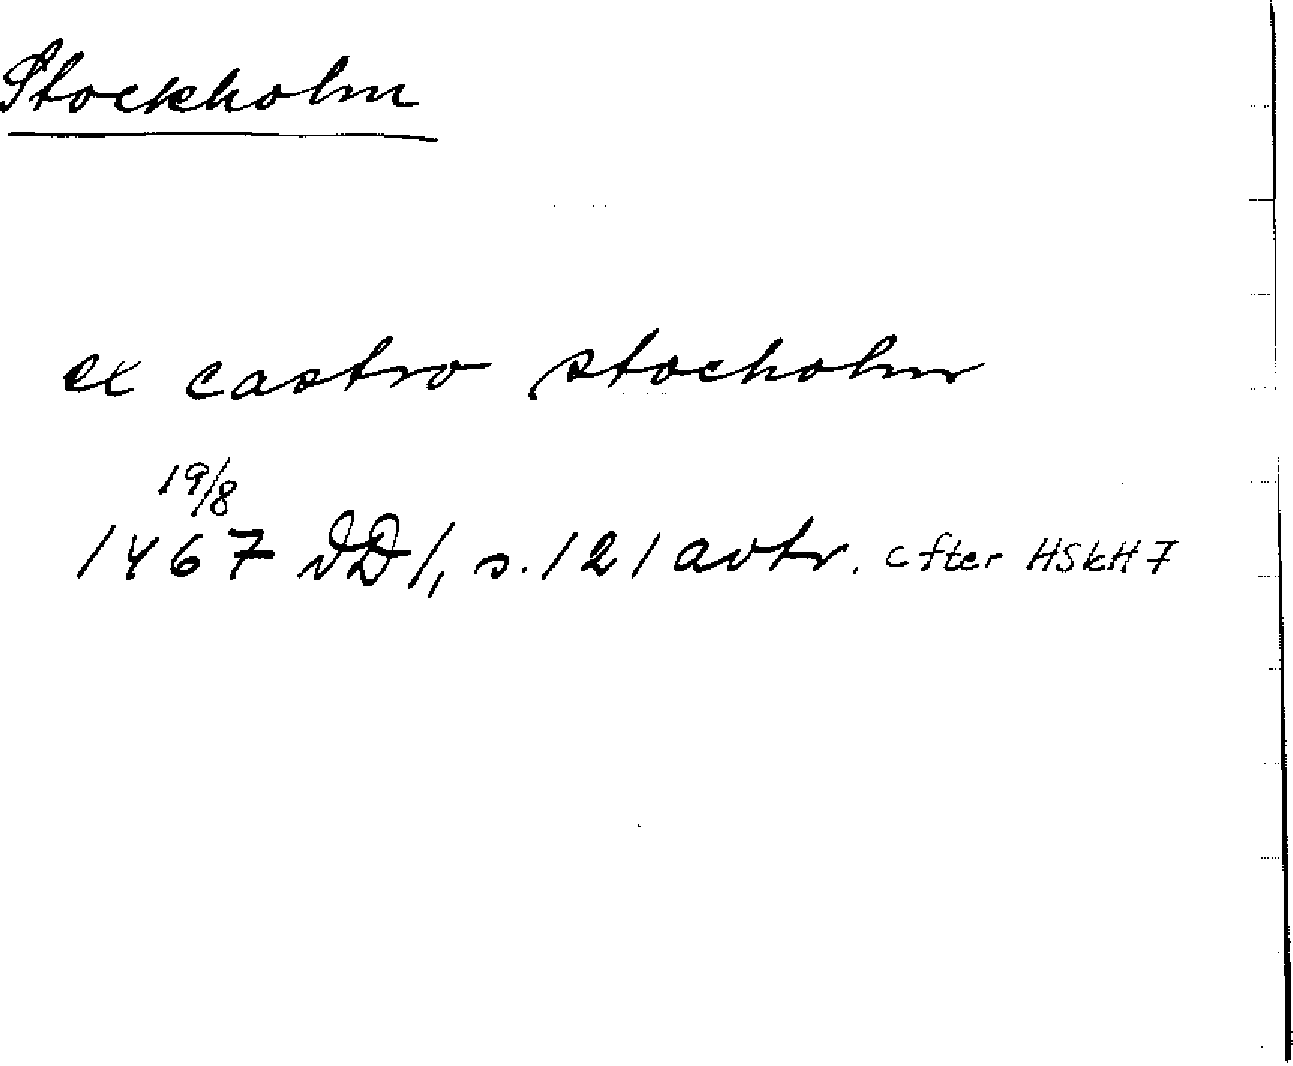 Stockholm
ex castro stocholm
19/8
1467 DD 1, s. 121 avtr. efter HSkH 7